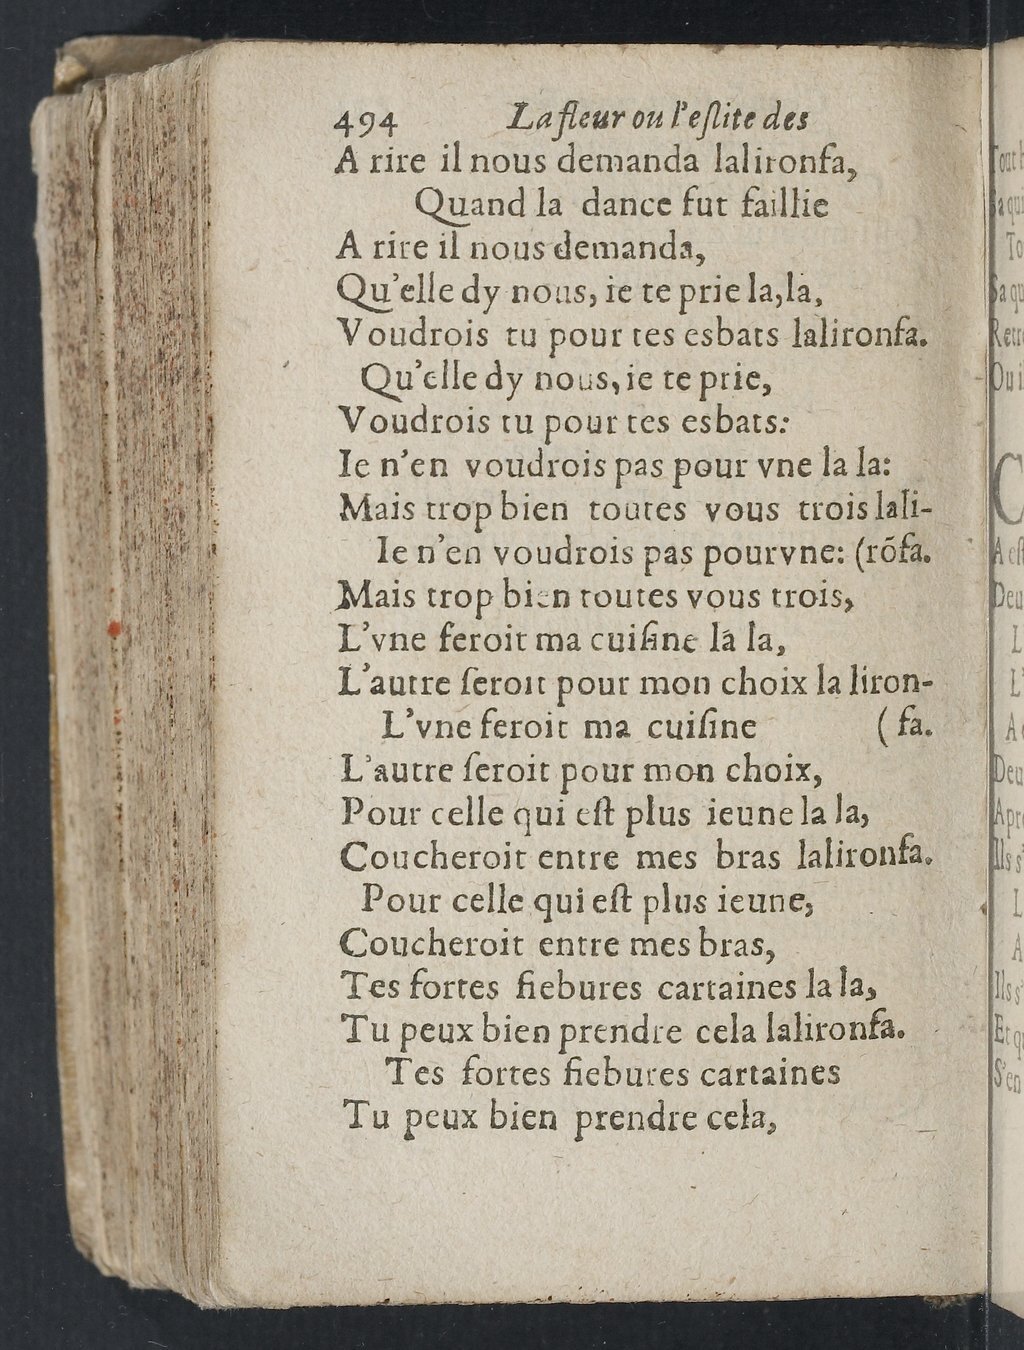 494 La fleur ou l'eſlite des
A rire il nous demanda lalironfa,
Quand la dance fut faillie
A rire il nous demanda,
Qu'elle dy nous, ie te prie la,la,
Voudrois tu pour tes esbats lalironfa.
Qu'elle dy nous, ie te prie,
Voudrois tu pour tes esbats:
Ie n'en voudrois pas pour vne la la:
Mais trop bien toutes vous trois lali-
Ie n'en voudrois pas pour vne: (rõfa.
Mais trop bien toutes vous trois,
L'vne feroit ma cuiſine la la,
L'autre ſeroit pour mon choix la liron-
L'vne feroit ma cuiſine (fa.
L'autre ſeroit pour mon choix,
Pour celle qui eſt plus ieune la la,
Coucheroit entre mes bras lalironfa.
Pour celle qui eſt plus ieune,
Coucheroit entre mes bras,
Tes fortes fiebures cartaines la la,
Tu peux bien prendre cela lalironfa.
Tes fortes fiebures cartaines
Tu peux bien prendre cela,